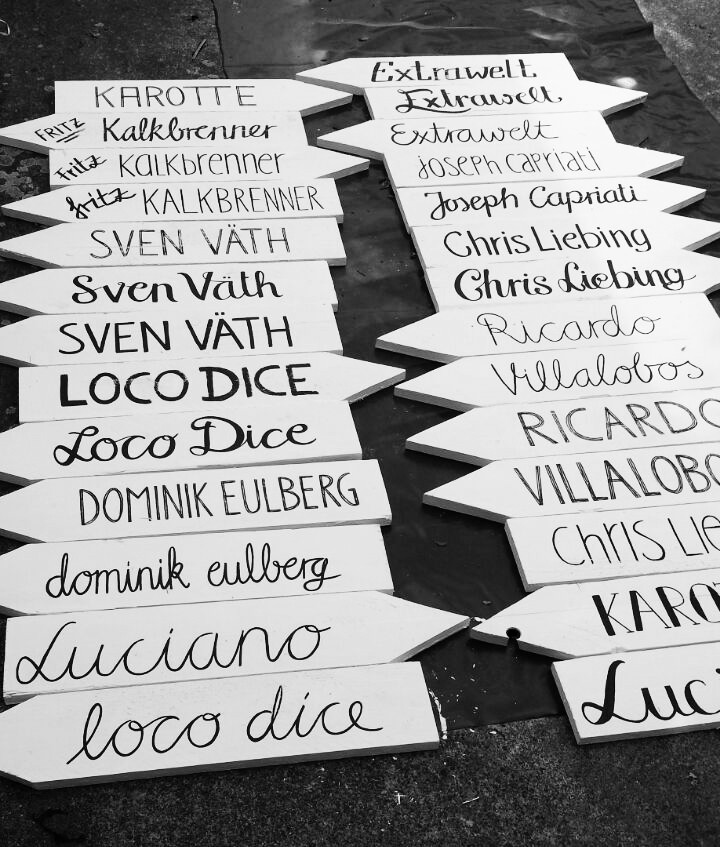 KAROTTE
FRITZ Kalkbrenner
Fritz Kalkbrenner
fritz KALKBRENNER
SVEN VÄTH
Sven Väth
SVEN VÄTH
LOCO DICE
Loco Dice
DOMINIK EULBERG
dominik eulberg
Luciano
loco dice
Extrawelt
Extrawelt
Extrawelt
Joseph Capriati
Joseph Capriati
Chris Liebing
Chris Liebing
Ricardo
Villalobos
RICARDO
VILLALOBO
Chris LIE
KARO
Luc